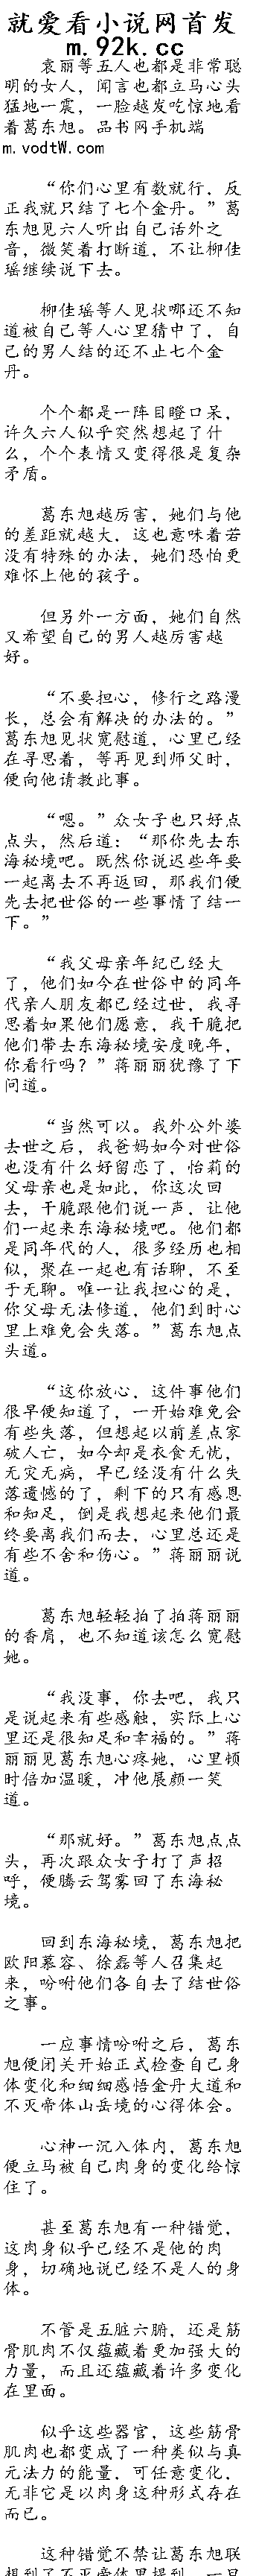 就爱看小说网首发
m.92k.cc
袁丽等五人也都是非常聪
明的女人，闻言也都立马心头
猛地一震，一脸越发吃惊地看
着葛东旭。品书网手机端
m.vodtW.com
“你们心里有数就行，反
正我就只结了七个金丹。”葛
东旭见六人听出自己话外之
音，微笑着打断道，不让柳佳
瑶继续说下去。
柳佳瑶等人见状哪还不知
道被自己等人心里猜中了，自
己的男人结的还不止七个金
丹。
个个都是一阵目瞪口呆，
许久六人似乎突然想起了什
么，个个表情又变得很是复杂
矛盾。
葛东旭越厉害，她们与他
的差距就越大，这也意味着若
没有特殊的办法，她们恐怕更
难怀上他的孩子。
但另外一方面，她们自然
又希望自己的男人越厉害越
好。
“不要担心，修行之路漫
长，总会有解决的办法的。”
葛东旭见状宽慰道，心里已经
在寻思着，等再见到师父时，
便向他请教此事。
“嗯。”众女子也只好点
点头，然后道：“那你先去东
海秘境吧。既然你说迟些年要
一起离去不再返回，那我们便
先去把世俗的一些事情了结一
下。”
“我父母亲年纪已经大
了，他们如今在世俗中的同年
代亲人朋友都已经过世，我寻
思着如果他们愿意，我干脆把
他们带去东海秘境安度晚年，
你看行吗？”蒋丽丽犹豫了下
问道。
“当然可以。我外公外婆
去世之后，我爸妈如今对世俗
也没有什么好留恋了，怡莉的
父母亲也是如此，你这次回
去，干脆跟他们说一声，让他
们一起来东海秘境吧。他们都
是同年代的人，很多经历也相
似，聚在一起也有话聊，不至
于无聊。唯一让我担心的是，
你父母无法修道，他们到时心
里上难免会失落。”葛东旭点
头道。
“这你放心，这件事他们
很早便知道了，一开始难免会
有些失落，但想起以前差点家
破人亡，如今却是衣食无忧，
无灾无病，早已经没有什么失
落遗憾的了，剩下的只有感恩
和知足，倒是我想起来他们最
终要离我们而去，心里总还是
有些不舍和伤心。”蒋丽丽说
道。
葛东旭轻轻拍了拍蒋丽丽
的香肩，也不知道该怎么宽慰
她。
“我没事，你去吧，我只
是说起来有些感触，实际上心
里还是很知足和幸福的。”蒋
丽丽见葛东旭心疼她，心里顿
时倍加温暖，冲他展颜一笑
道。
“那就好。”葛东旭点点
头，再次跟众女子打了声招
呼，便腾云驾雾回了东海秘
境。
回到东海秘境，葛东旭把
欧阳慕容、徐磊等人召集起
来，吩咐他们各自去了结世俗
之事。
一应事情吩咐之后，葛东
旭便闭关开始正式检查自己身
体变化和细细感悟金丹大道和
不灭帝体山岳境的心得体会。
心神一沉入体内，葛东旭
便立马被自己肉身的变化给惊
住了。
甚至葛东旭有一种错觉，
这肉身似乎已经不是他的肉
身，切确地说已经不是人的身
体。
不管是五脏六腑，还是筋
骨肌肉不仅蕴藏着更加强大的
力量，而且还蕴藏着许多变化
在里面。
似乎这些器官，这些筋骨
肌肉也都变成了一种类似与真
元法力的能量，可任意变化，
无非它是以肉身这种形式存在
而已。
这种错觉不禁让葛东旭联
想到了不灭帝体里提到，一旦